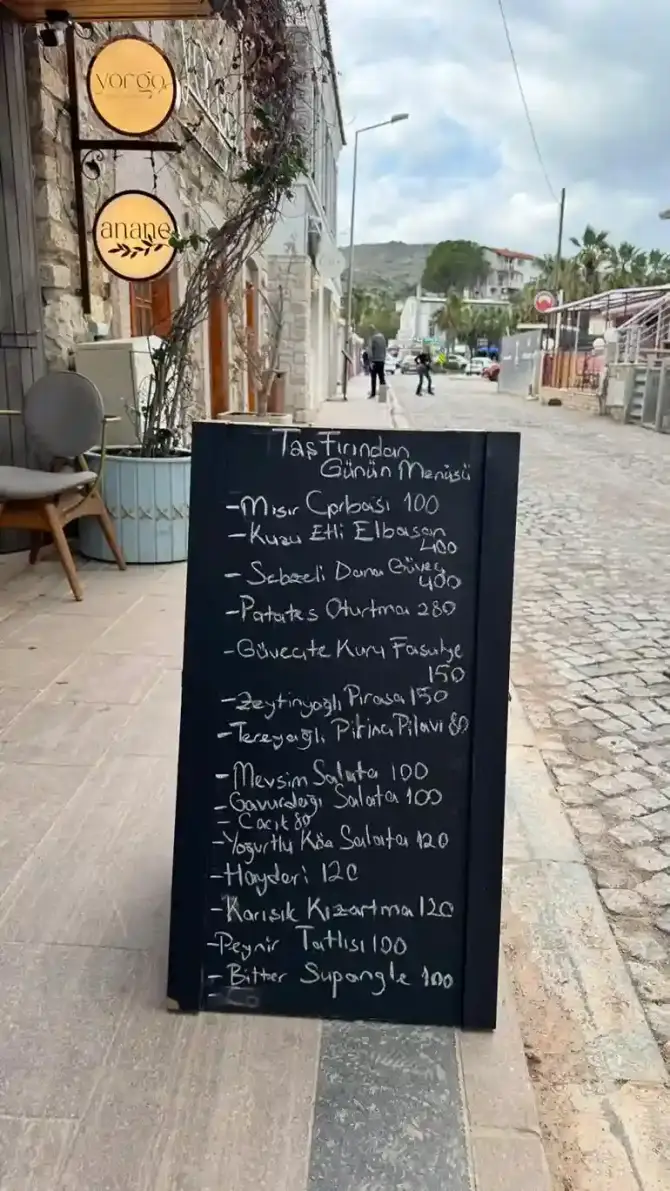 yorgo
anane
Taş Fırından
Günün Menüsü
- Mısır Çorbası 100
- Kuzu Etli Elbasan
400
- Sebzeli Dana Güveç
400
- Patates Oturtma 280
- Güveçte Kuru Fasulye
150
- Zeytinyağlı Pırasa 150
- Tereyağlı Pirinç Pilavı 80
- Mevsim Salata 100
- Gavurdağı Salata 100
- Cacık 80
- Yoğurtlu Köz Salata 120
- Haydari 120
- Karışık Kızartma 120
- Peynir Tatlısı 100
- Bitter Supangle 100